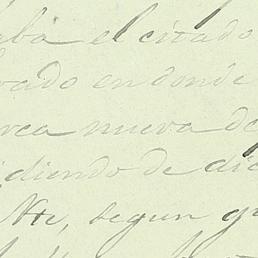 aba el citado
vado en donde
rca nueva de
idiendo de dic
Nte, segun qu